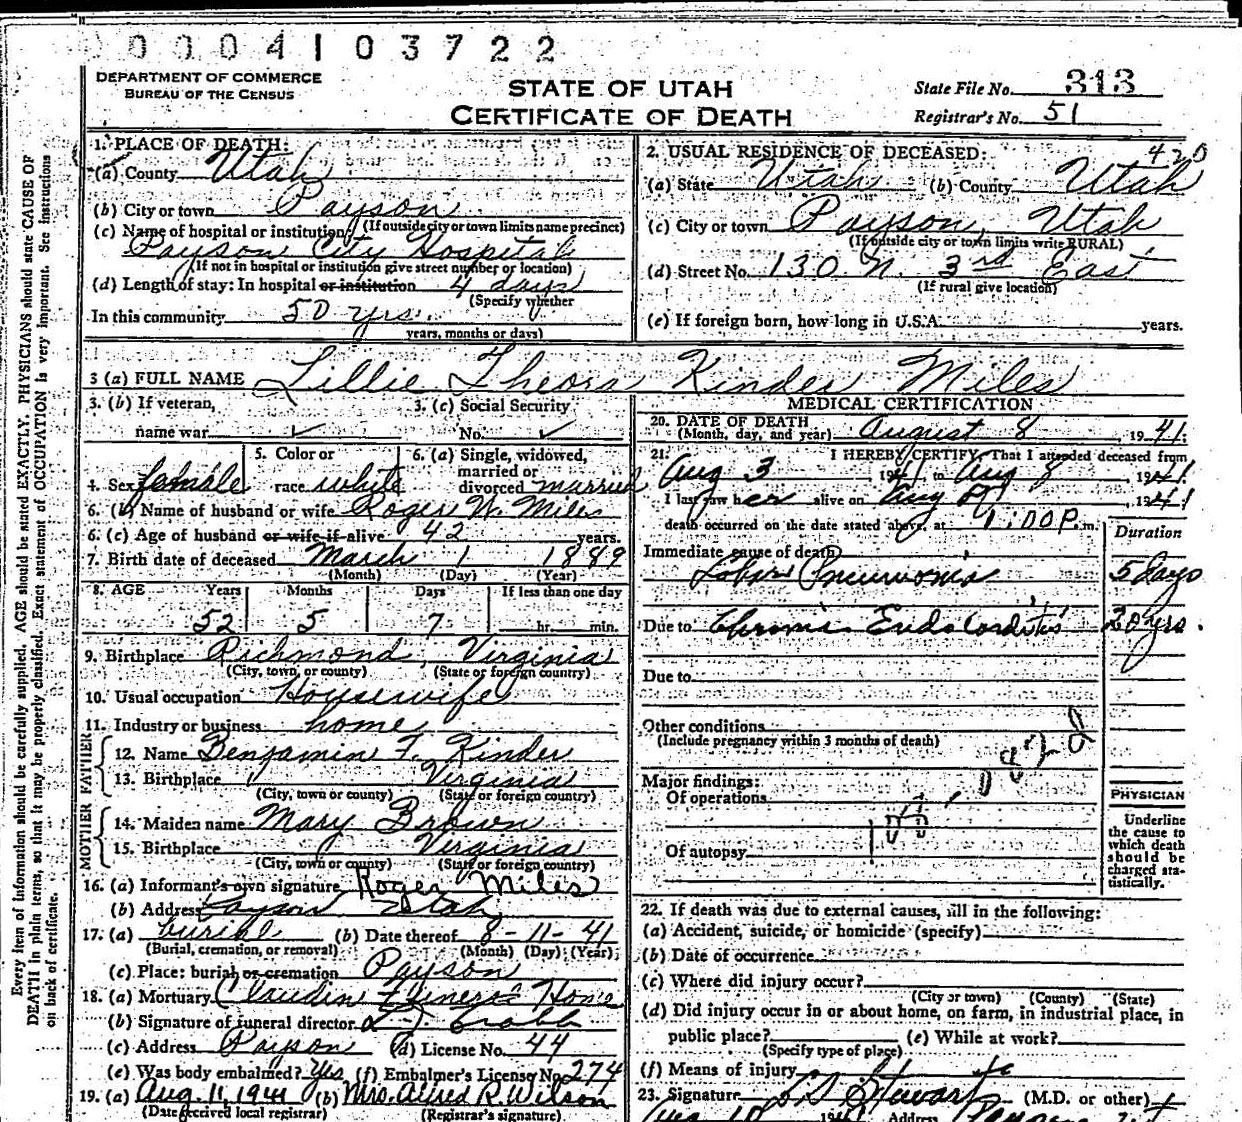 0004103722
DEPARTMENT OF COMMERCE
BUREAU OF THE CENSUS
STATE OF UTAH
CERTIFICATE OF DEATH
State File No. 313
Registrar's No. 51
1. PLACE OF DEATH:
(a) County Utah
(b) City or town Payson
(If outside city or town limits name precinct)
(c) Name of hospital or institution:
Payson City Hospital
(If not in hospital or institution give street number or location)
(d) Length of stay: In hospital or institution 4 days
(Specify whether
In this community 50 yrs.
years, months or days)
420
2. USUAL RESIDENCE OF DECEASED:
(a) State Utah (b) County Utah
(c) City or town Payson, Utah
(If outside city or town limits write RURAL)
(d) Street No. 130 N. 3rd East
(If rural give location)
(e) If foreign born, how long in U.S.A. years.
3 (a) FULL NAME Lillie Theora Kinder Miles
3. (b) If veteran,
name war ✓
3. (c) Social Security
No. ✓
4. Sex female
5. Color or
race white
6. (a) Single, widowed,
married or
divorced married
6. (b) Name of husband or wife Roger W. Miles
6. (c) Age of husband or wife if alive 42 years.
7. Birth date of deceased March 1 1889
(Month) (Day) (Year)
8. AGE Years Months Days If less than one day
52 5 7 hr. min.
9. Birthplace Richmond, Virginia
(City, town, or county) (State or foreign country)
10. Usual occupation Housewife
11. Industry or business home
FATHER
12. Name Benjamin F. Kinder
13. Birthplace Virginia
(City, town or county) (State or foreign country)
MOTHER
14. Maiden name Mary Brown
15. Birthplace Virginia
(City, town or county) (State or foreign country)
16. (a) Informant's own signature Roger Miles
(b) Address Payson Utah
17. (a) burial (b) Date thereof 8-11-41
(Burial, cremation, or removal) (Month) (Day) (Year)
(c) Place: burial or cremation Payson
18. (a) Mortuary Claudin Funeral Home
(b) Signature of funeral director
(c) Address Payson (d) License No. 44
(e) Was body embalmed? Yes (f) Embalmer's License No. 274
19. (a) Aug. 11, 1941 (b) Mrs. Alfred R. Wilson
(Date received local registrar) (Registrar's signature)
MEDICAL CERTIFICATION
20. DATE OF DEATH
(Month, day, and year) August 8, 1941.
21. I HEREBY CERTIFY, That I attended deceased from
Aug 3 1941 to Aug 8, 1941
I last saw her alive on Aug 8, 1941
death occurred on the date stated above, at 1:00 P. m.
Duration
Immediate cause of death
Lobar Pneumonia 5 days
Due to Chronic Endocarditis 20 yrs.
Due to
Other conditions
(Include pregnancy within 3 months of death)
Major findings:
Of operations
Of autopsy
PHYSICIAN
Underline
the cause to
which death
should be
charged sta-
tistically.
22. If death was due to external causes, fill in the following:
(a) Accident, suicide, or homicide (specify)
(b) Date of occurrence
(c) Where did injury occur?
(City or town) (County) (State)
(d) Did injury occur in or about home, on farm, in industrial place, in
public place? (e) While at work?
(Specify type of place)
(f) Means of injury
23. Signature L D Stewart (M.D. or other)
Address
Every item of information should be carefully supplied. AGE should be stated EXACTLY. PHYSICIANS should state CAUSE OF
DEATH in plain terms, so that it may be properly classified. Exact statement of OCCUPATION is very important. See instructions
on back of certificate.